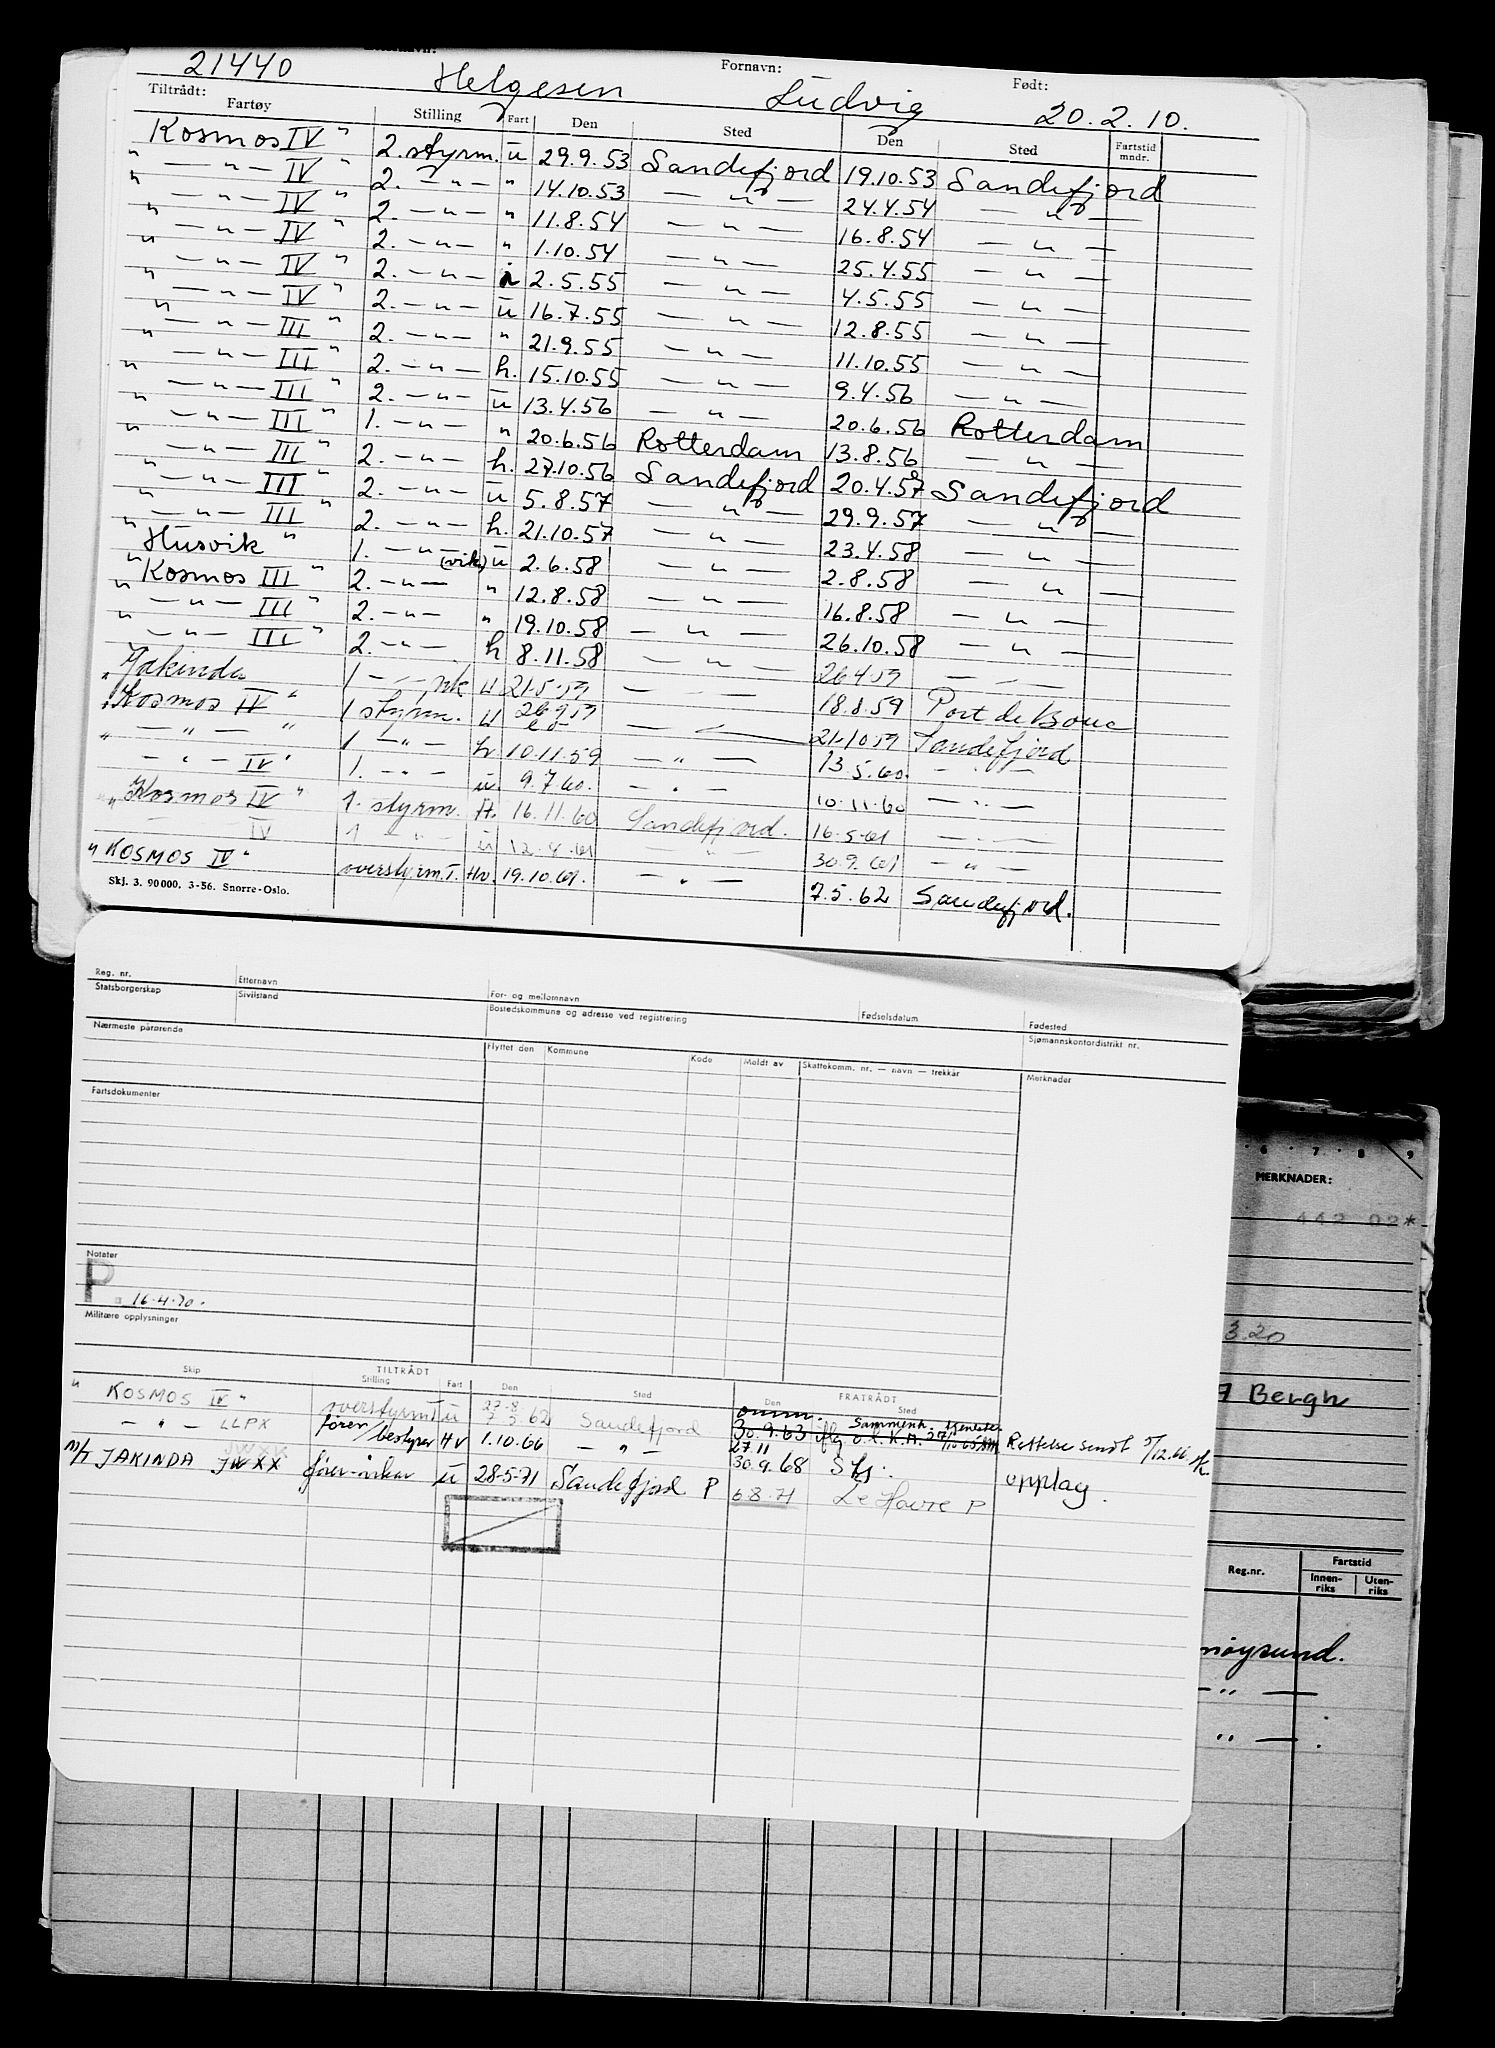 21440 Helgesen Fornavn: Ludvig Født: 20.2.10.
Tiltrådt:
Fartøy Stilling Fart Den Sted Den Sted Fartstid mndr.
Kosmos IV " 2. styrm. u 29.9.53 Sandefjord 19.10.53 Sandefjord
" — " — IV " 2. — " — " 14.10.53 — " — 24.4.54 — " —
" — " — IV " 2. — " — " 11.8.54 — " — 16.8.54 — " —
" — " — IV " 2. — " — " 1.10.54 — " — 25.4.55 — " —
" — " — IV " 2. — " — i 2.5.55 — " — 4.5.55 — " —
" — " — IV " 2. — " — u 16.7.55 — " — 12.8.55 — " —
" — " — III " 2. — " — " 21.9.55 — " — 11.10.55 — " —
" — " — III " 2. — " — h. 15.10.55 — " — 9.4.56 — " —
" — " — III " 2. — " — u 13.4.56 — " — 20.6.56 Rotterdam
" — " — III " 1. — " — " 20.6.56 Rotterdam 13.8.56 — " —
" — " — III " 2. — " — h. 27.10.56 Sandefjord 20.4.57 Sandefjord
" — " — III " 2. — " — u 5.8.57 — " — 29.9.57 — " —
" — " — III " 2. — " — h. 21.10.57 — " — 23.4.58 — " —
" Husvik " 1. — " — (vik) u 2.6.58 — " — 2.8.58 — " —
" Kosmos III " 2. — " — " 12.8.58 — " — 16.8.58 — " —
" — " — III " 2. — " — " 19.10.58 — " — 26.10.58 — " —
" — " — III " 2. — " — h 8.11.58 — " — 26.4.59 — " —
" Jakinda 1 — " — vik u 21.5.59 — " — 18.8.59 Port de Bouc
" Kosmos IV " 1 styrm. u 26.9.59 — " — 21.10.59 Sandefjord
" — " — " 1 — " — h 10.11.59 — " — 13.5.60. — " —
— " — IV " 1. — " — u. 9.7.60. — " — 10.11.60 — " —
" Kosmos IV " 1. styrm. H. 16.11.60 Sandefjord. 16.5.61 — " —
IV 1 " u 12.4.61 — " — 30.9.61 — " —
" KOSMOS IV " overstyrm.I. Hv. 19.10.61. — " — 7.5.62 Sandefjord.
Skj. 3. 90 000. 3-56. Snorre-Oslo.
Reg. nr. Etternavn For- og mellomnavn Fødselsdatum Fødested
Statsborgerskap Sivilstand Bostedskommune og adresse ved registrering Sjømannskontordistrikt nr.
Nærmeste pårørende Flyttet den Kommune Kode Meldt av Skattekomm. nr. — navn — trekkår Merknader
Fartsdokumenter
Notater
P. 16.4.70.
Militære opplysninger
TILTRÅDT FRATRÅDT
Skip Stilling Fart Den Sted Den Sted
" KOSMOS IV " overstyrm I u 27.8 7.5.62 Sandefjord omm. 30.9.63 iflg Sammenh. tjeneste
— " — LLPX fører/bestyrer Hv 1.10.66 — " — 27.11 30.9.68 Sfj. Rettelse sendt 5/12.66
M/T JAKINDA JWXX fører-vikar u 28.5.71 Sandefjord P 6.8.71 Le Havre P opplag.
6 7 8 9
MERKNADER:
442 02*
3.20
7 Bergh
Reg.nr. Fartstid
Innenriks Utenriks
møysund.
— " —
— " — .